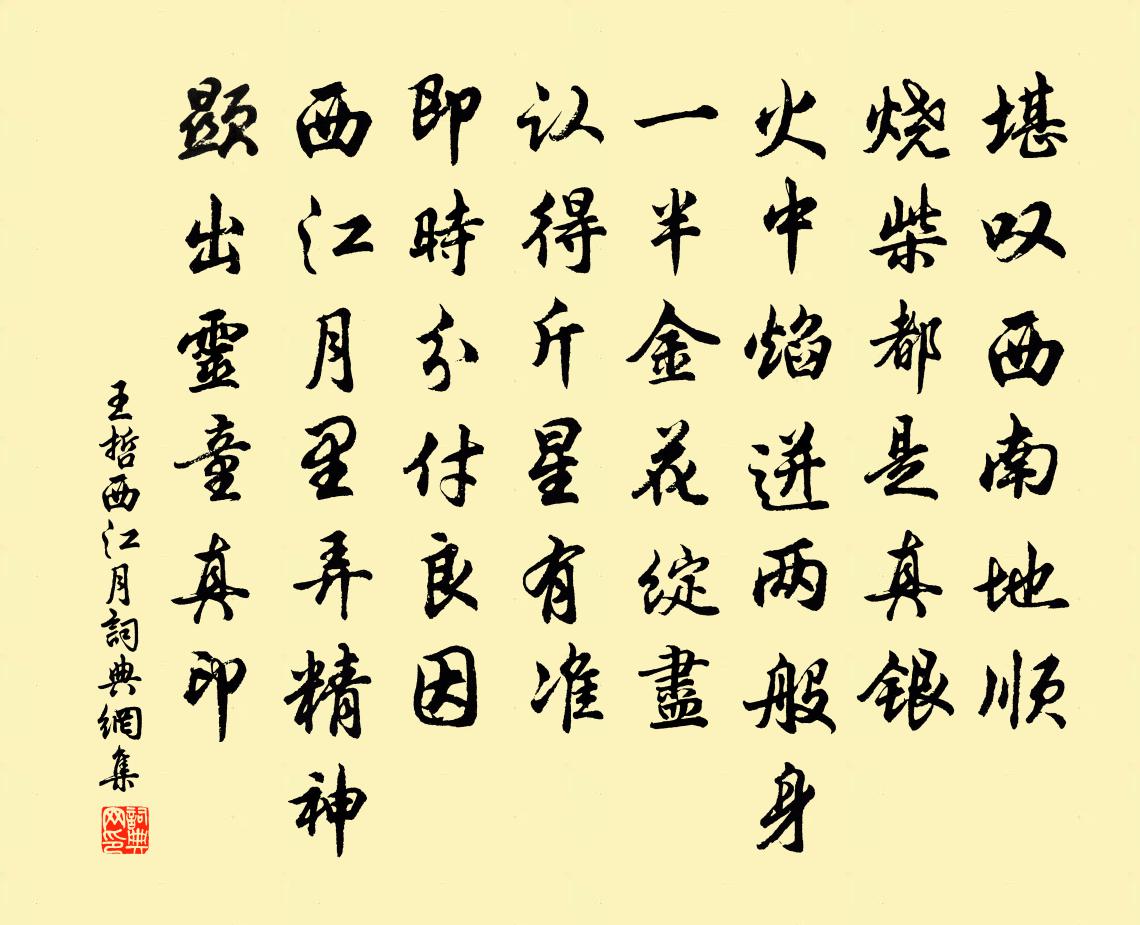 堪叹西南地顺
烧柴都是真银
火中焰迸两般身
一半金花绽盡
认得斤星有准
即時分付良因
西江月里弄精神
顯出靈童真印
王哲西江月詞典網集
詞典网印